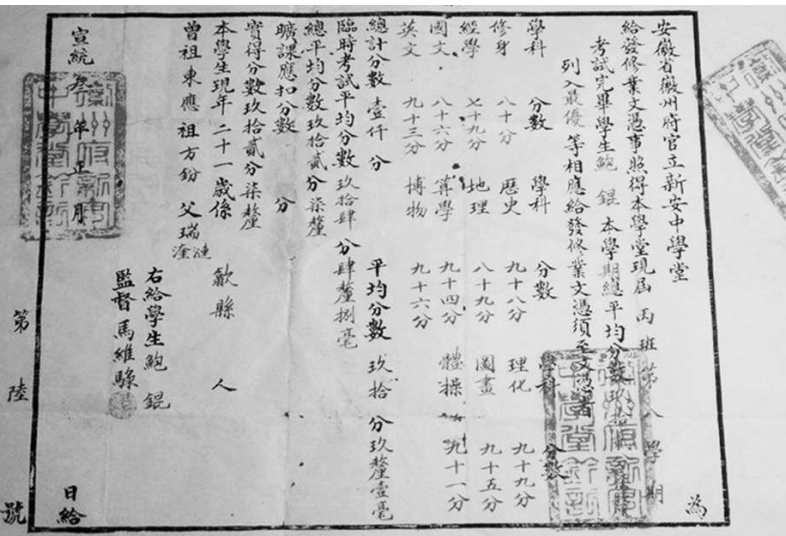 安徽省徽州府官立新安中學堂 為
給發修業文憑事照得本學堂現屆 丙班第八學期
考試完畢學生鮑 錕 本學期總平均分數玖拾
列入最優等相應給發修業文憑須至文憑者
學科 分數 學科 分數 學科 分數
修身 八十分 歷史 九十八分 理化 九十九分
經學 七十九分 地理 八十九分 圖畫 九十五分
國文 八十六分 算學 九十四分 體操 九十一分
英文 九十三分 博物 九十六分
總計分數 壹仟 分 平均分數 玖拾 分玖釐壹毫
臨時考試平均分數玖拾肆 分肆釐捌毫
總平均分數玖拾貳分柒釐
曠課應扣分數 分
實得分數玖拾貳分柒釐
本學生現年二十一歲係 歙縣 人
曾祖東應 祖方 父瑞漣淦
右給學生鮑 錕
監督馬維騄
宣統叁年正月 日給
第陸號